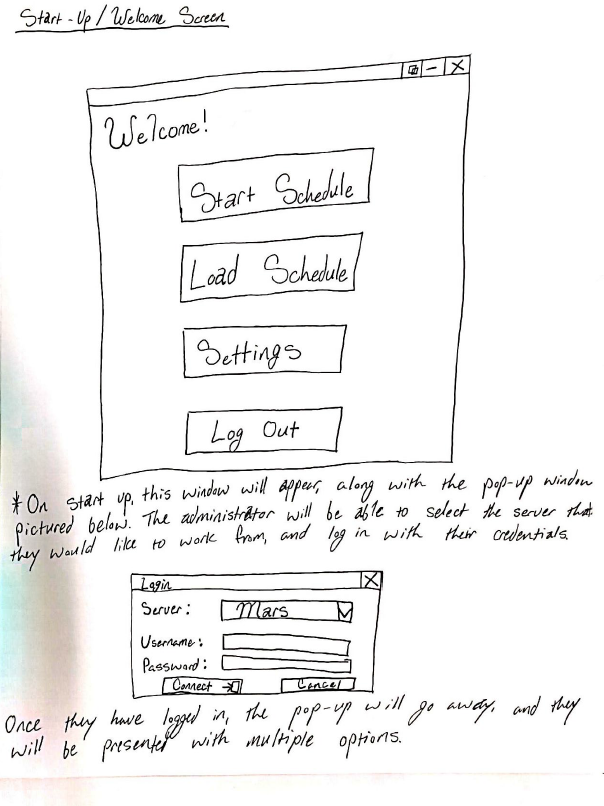 Start-Up / Welcome Screen
Welcome!
Start Schedule
Load Schedule
Settings
Log Out
* On start up, this window will appear, along with the pop-up window
pictured below. The administrator will be able to select the server that
they would like to work from, and log in with their credentials.
Login
Server: Mars
Username:
Password:
Connect Cancel
Once they have logged in, the pop-up will go away, and they
will be presented with multiple options.